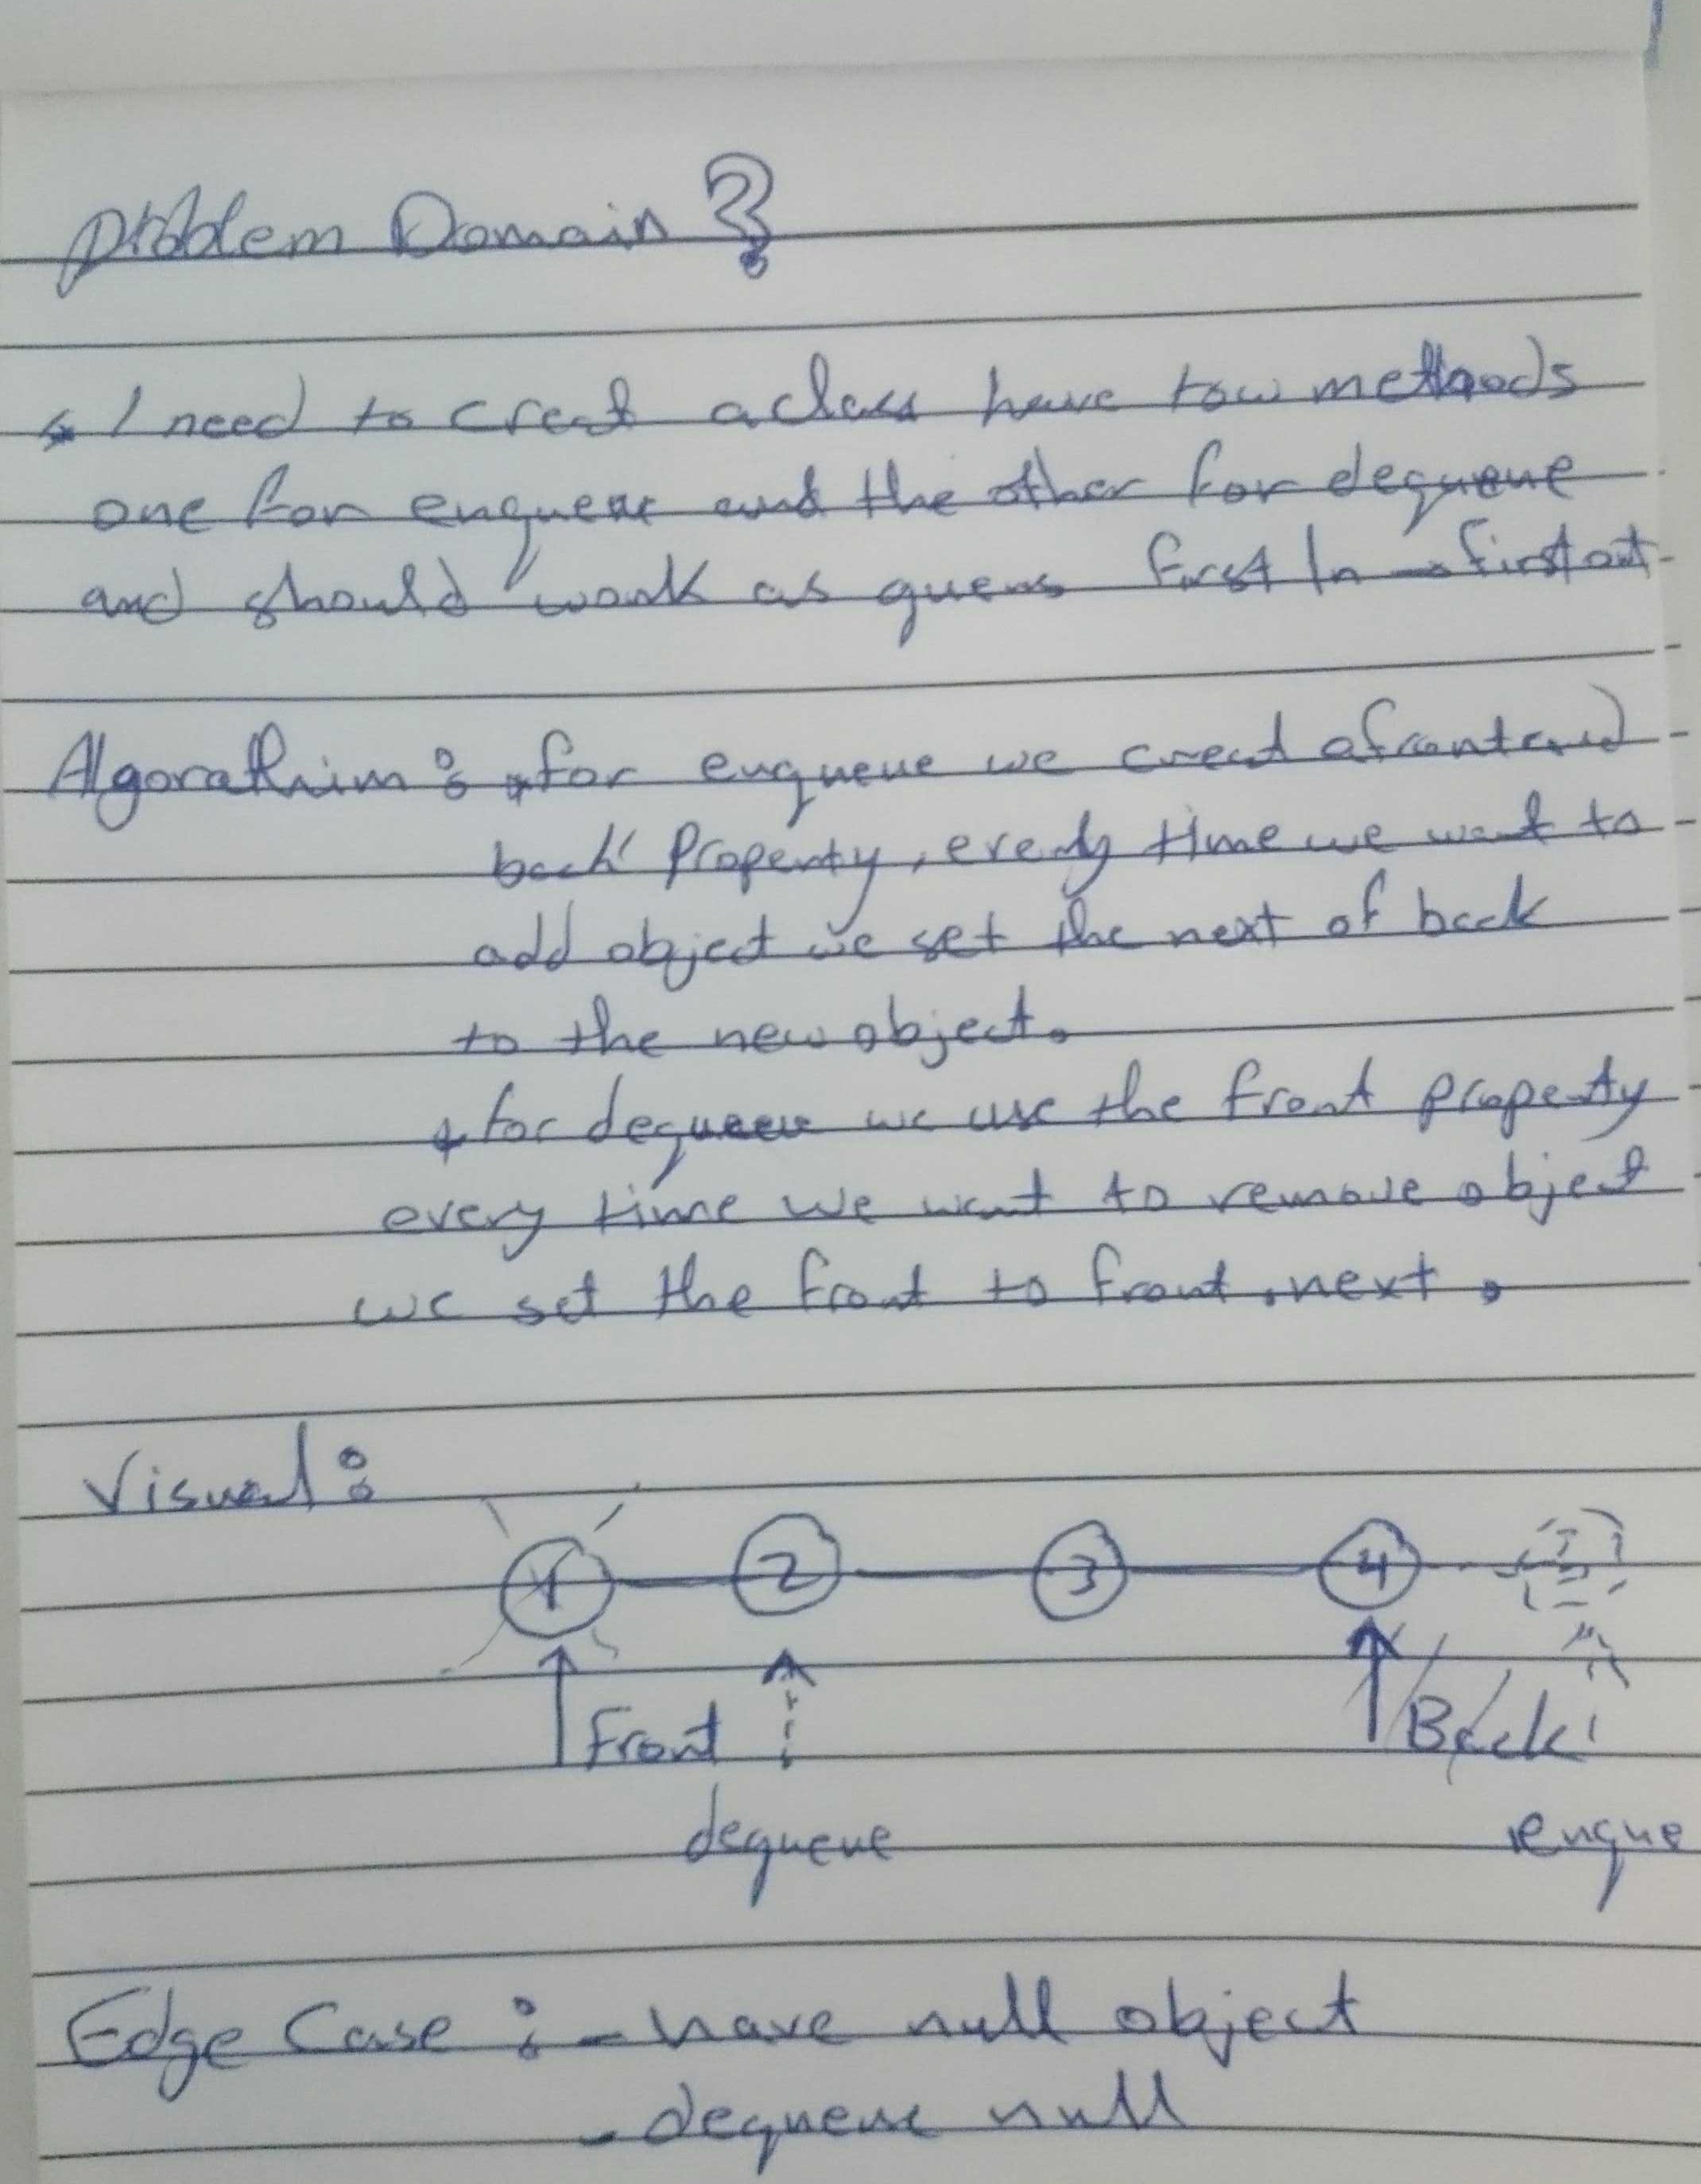 Problem Domain ?
* I need to creat a class have tow methods
one for enqueue and the other for dequeue
and should work as queue first In - first out
Algorathim : * for enqueue we creat a front and
back property, every time we want to
add object we set the next of back
to the new object.
* for dequeue we use the front property
every time we want to remove object
we set the front to front.next.
Visual :
1 2 3 4
Front Back
dequeue enque
Edge Case : - have null object
- dequeue null